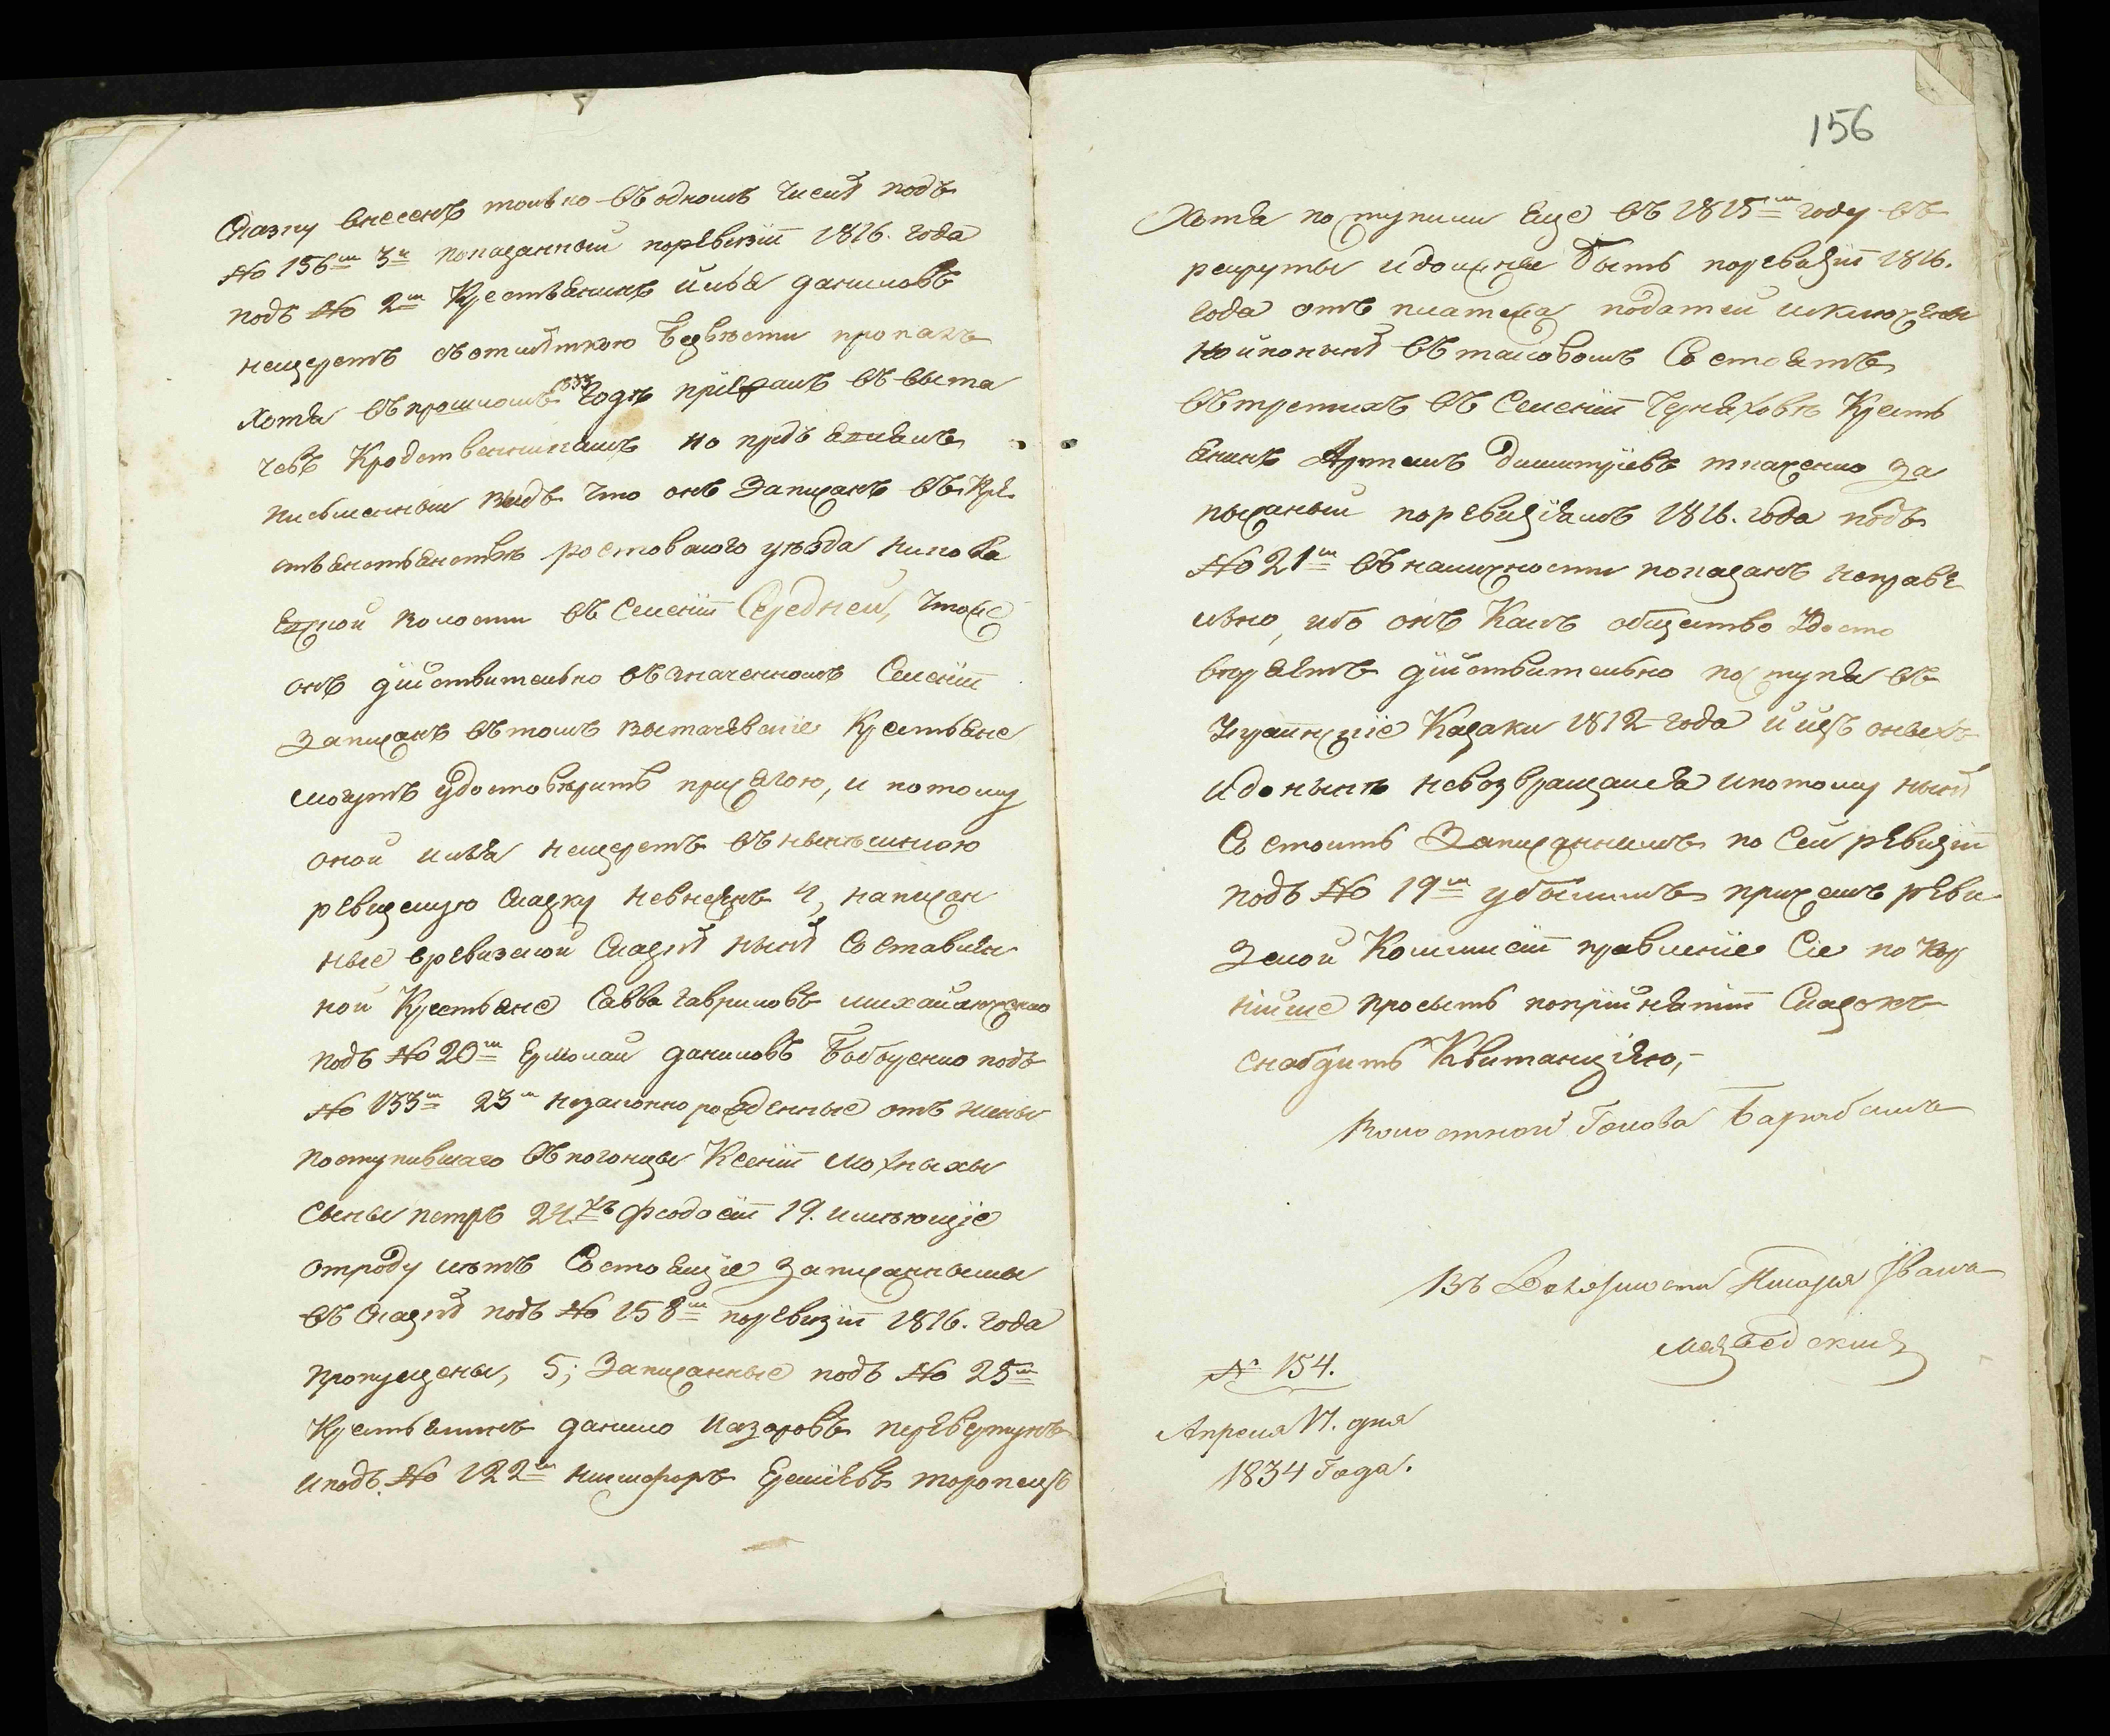 Сказку внесенъ только въ одномъ числѣ подъ
No 156м 3й показанный поревизіи 1816. года
подъ No 2м Крестьянинъ Илья даниловъ
нещеретъ съ отмѣткою безвѣсти пропалъ
Хотя въ прошломъ 1833 годѣ пріезжалъ въ выста
чевъ Кродственникамъ но предъ являлъ
письменный видъ что онъ записанъ въ Кре
стьянство ростовского уѣзда
волости въ Селеніи Середней, что же
онъ дѣйствительно въ означенномъ Селеніи
записанъ въ томъ выстачевские Крестьяне
могутъ удостовѣрить присягою, и потому
оной илья нещеретъ въ нынѣшнюю
ревизскую сказку невнесенъ 4, написан
ные вревизской Сказкѣ нынѣ Составлен
ной Крестьяне Савва гавриловъ
подъ No 20м Ермолай даниловъ Бабченко подъ
No 133м 23м незаконно рожденные отъ жены
поступившаго въ погонцы Ксеніи
сыны петръ 24хъ Феодосій 19. имѣющіе
отроду лѣтъ Состоящіе записанными
въ Сказкѣ подъ No 158м поревизіи 1816. года
пропущены, 5; Записанные подъ No 25м
Крестьянинъ данило Назаровъ перевертунъ
и подъ No 122м никифоръ Еремѣевъ торопецъ
156
Хотя поступили еще въ 1815м году въ
рекруты и должны быть поревизіи 1816.
года отъ платежа податей исключены
но и понынѣ въ таковомъ Состоятъ
въ третихъ въ Селеніи Черняховѣ Кресть
янинъ Артемъ димитріевъ ткаченко за
писаный поревизіямъ 1816. года подъ
No 21м въ наличности показанъ неправе
льно, ибо онъ Какъ общество Удосто
вѣряетъ дѣйствительно поступя въ
Украинскіе Казаки 1812 года и изъ оныхъ
и до нынѣ невозвращался и потому нынѣ
Состоитъ Записаннымъ по Сей ревизіи
подъ No 19м убылимъ причемъ реви
зской Коммисіи правленіе Сіе по Кор
нѣйше проситъ попринятіи Сказокъ
снабдить Квитанціею,-
волостной Голова Барабашъ
Въ Должности Писаря Иванъ
No 154.
Апреля 17. дня
1834 Года.